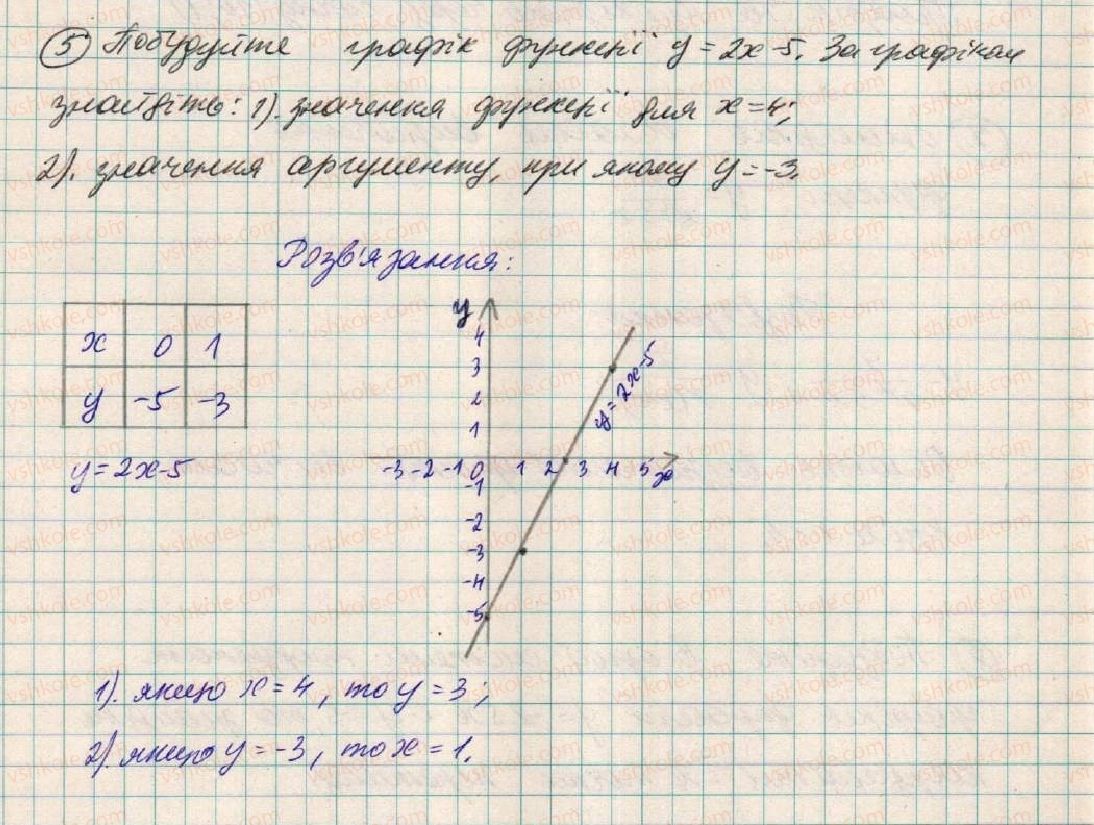 5 Побудуйте графік функції y = 2x - 5. За графіком
знайдіть: 1). значення функції для x = 4;
2). значення аргументу, при якому y = -3.
Розв'язання:
x 0 1
y -5 -3
y = 2x - 5
y
4
3
2
1
-3 -2 -1 0 1 2 3 4 5 x
-1
-2
-3
-4
-5
y = 2x - 5
1). якщо x = 4, то y = 3;
2). якщо y = -3, то x = 1.
vshkole.com